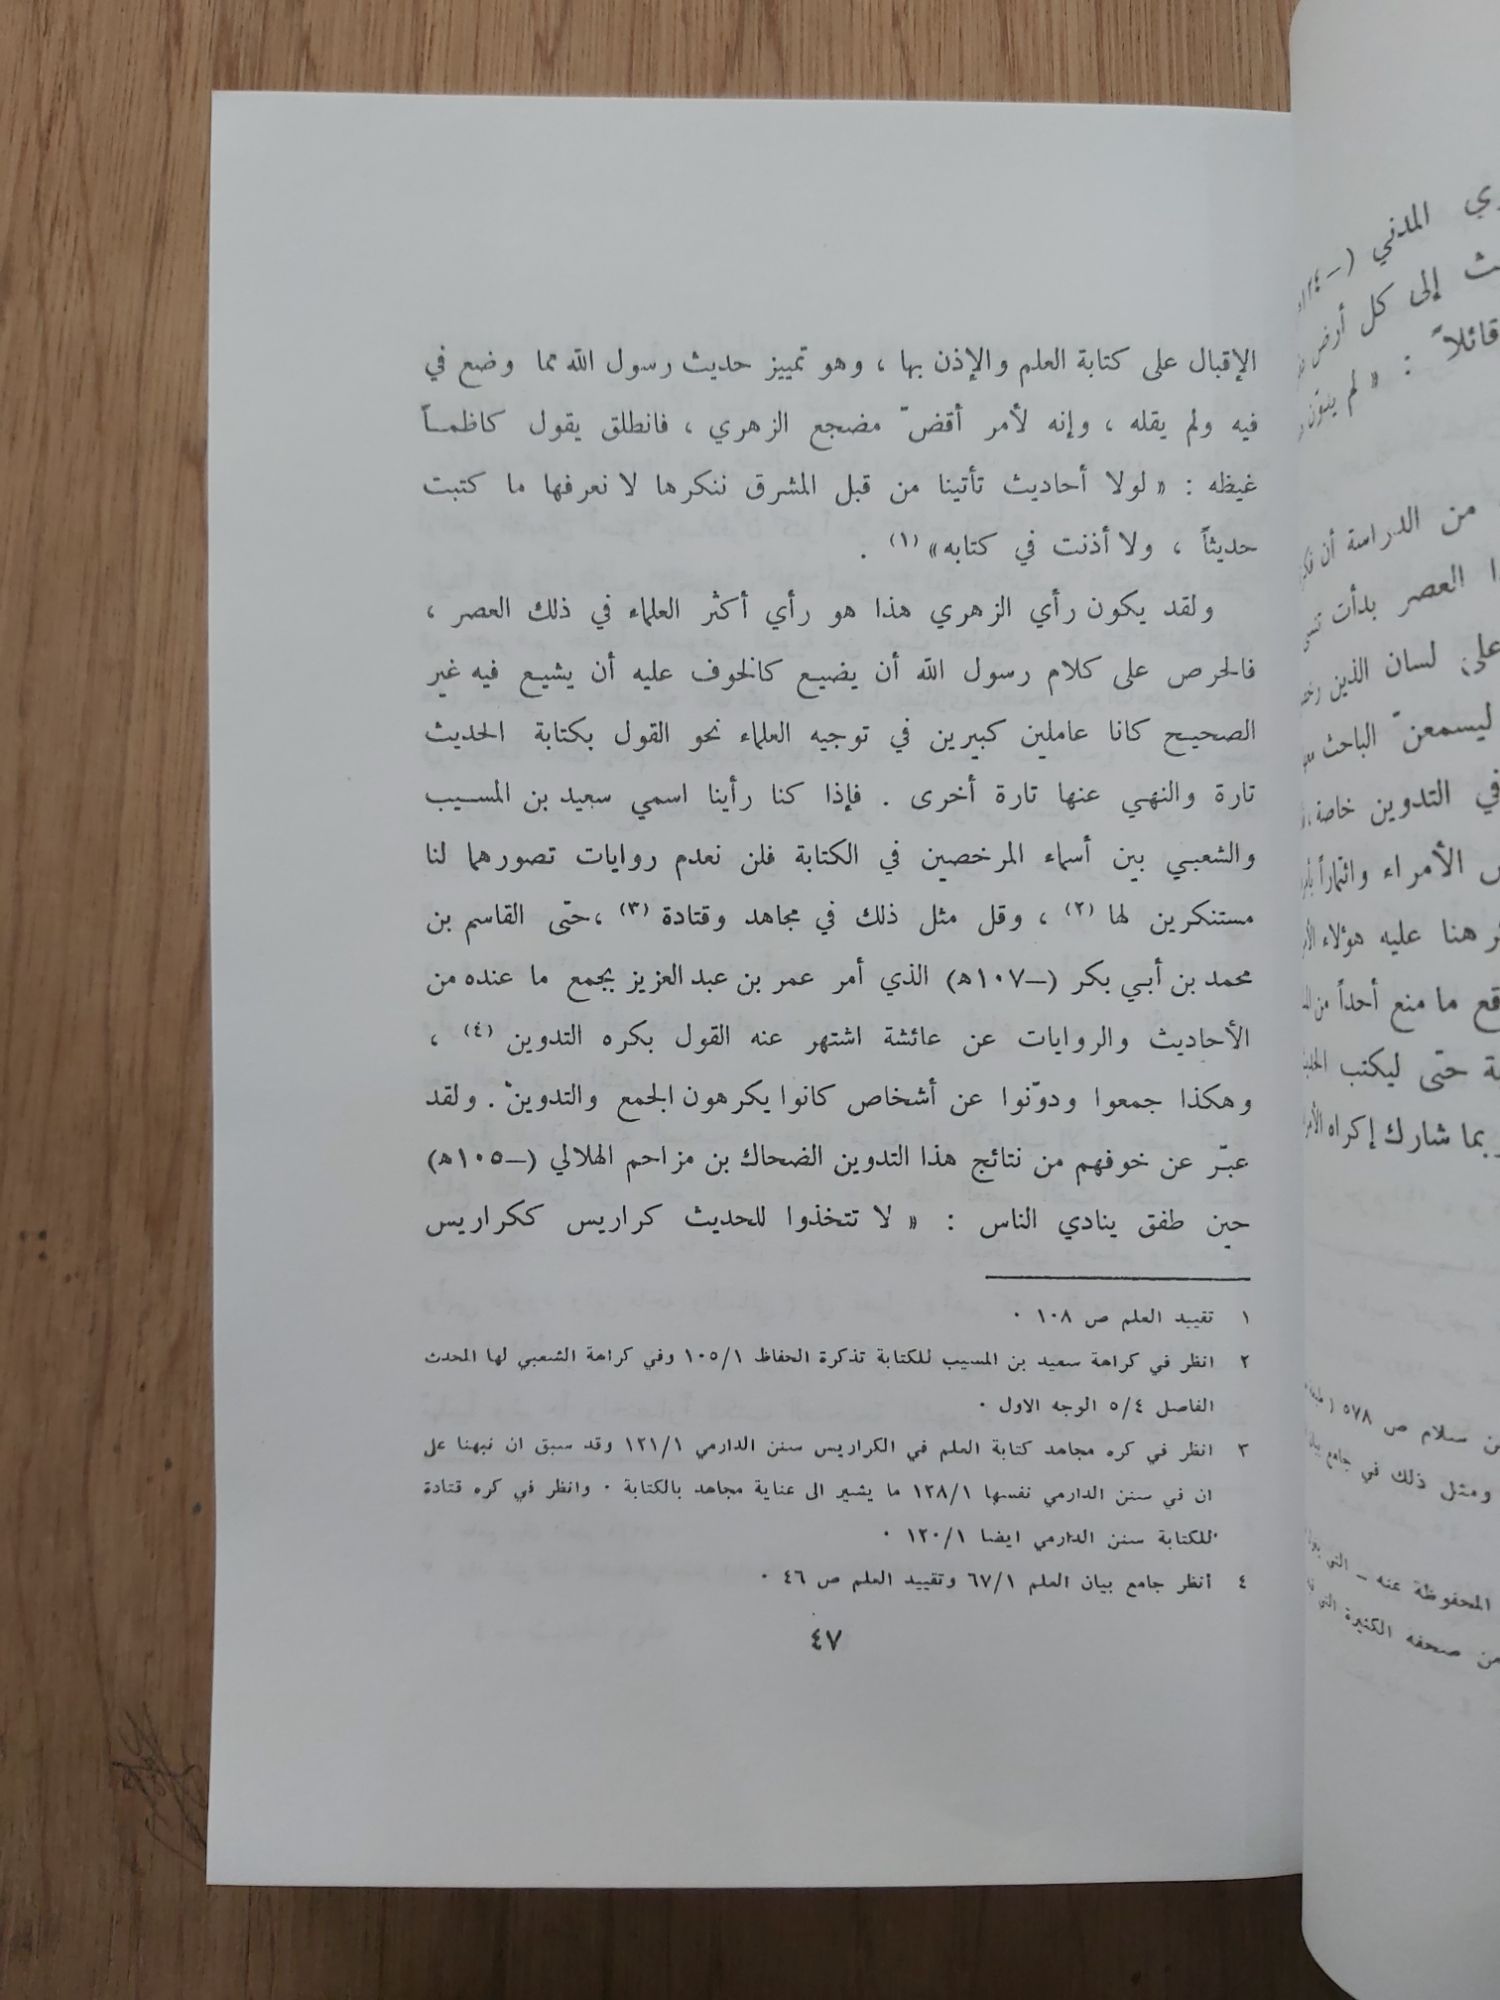 الإقبال على كتابة العلم والإذن بها ، وهو تمييز حديث رسول الله مما وضع في
فيه ولم يقله ، وإنه لأمر أقضّ مضجع الزهري ، فانطلق يقول كاظمـاً
غيظه : « لولا أحاديث تأتينا من قبل المشرق ننكرها لا نعرفها ما كتبت
حديثاً ، ولا أذنت في كتابه» (١) .
ولقد يكون رأي الزهري هذا هو رأي أكثر العلماء في ذلك العصر ،
فالحرص على كلام رسول الله أن يضيع كالخوف عليه أن يشيع فيه غير
الصحيح كانا عاملين كبيرين في توجيه العلماء نحو القول بكتابة الحديث
تارة والنهي عنها تارة أخرى . فإذا كنا رأينا اسمي سعيد بن المسيب
والشعبي بين أسماء المرخصين في الكتابة فلن نعدم روايات تصورهما لنا
مستنكرين لها (٢) ، وقل مثل ذلك في مجاهد وقتادة (٣) ،حتى القاسم بن
محمد بن أبي بكر (–١٠٧ه) الذي أمر عمر بن عبد العزيز بجمع ما عنده من
الأحاديث والروايات عن عائشة اشتهر عنه القول بكره التدوين (٤) ،
وهكذا جمعوا ودوّنوا عن أشخاص كانوا يكرهون الجمع والتدوين . ولقد
عبّر عن خوفهم من نتائج هذا التدوين الضحاك بن مزاحم الهلالي (–١٠٥ه)
حين طفق ينادي الناس : « لا تتخذوا للحديث كراريس ككراريس
١ تقييد العلم ص ١٠٨ ٠
٢ انظر في كراهة سعيد بن المسيب للكتابة تذكرة الحفاظ ١٠٥/١ وفي كراهة الشعبي لها المحدث
الفاصل ٥/٤ الوجه الاول ٠
٣ انظر في كره مجاهد كتابة العلم في الكراريس سنن الدارمي ١٢١/١ وقد سبق ان نبهنا على
ان في سنن الدارمي نفسها ١٢٨/١ ما يشير الى عناية مجاهد بالكتابة ٠ وانظر في كره قتادة
للكتابة سنن الدارمي ايضا ١٢٠/١ ٠
٤ أنظر جامع بيان العلم ٦٧/١ وتقييد العلم ص ٤٦ ٠
٤٧
المدني
إلى كل أرض
قائلاً : « لم
من الدراسة أن
العصر بدأت
على لسان الذين
ليسمعنّ الباحث
في التدوين خاصة
الأمراء وائتماراً
هنا عليه هؤلاء
ما منع أحداً من
حتى ليكتب
بما شارك إكراه
سلام ص ٥٧٨
ومثل ذلك في جامع
المحفوظة عنه – التي
من صحفه الكثيرة التي